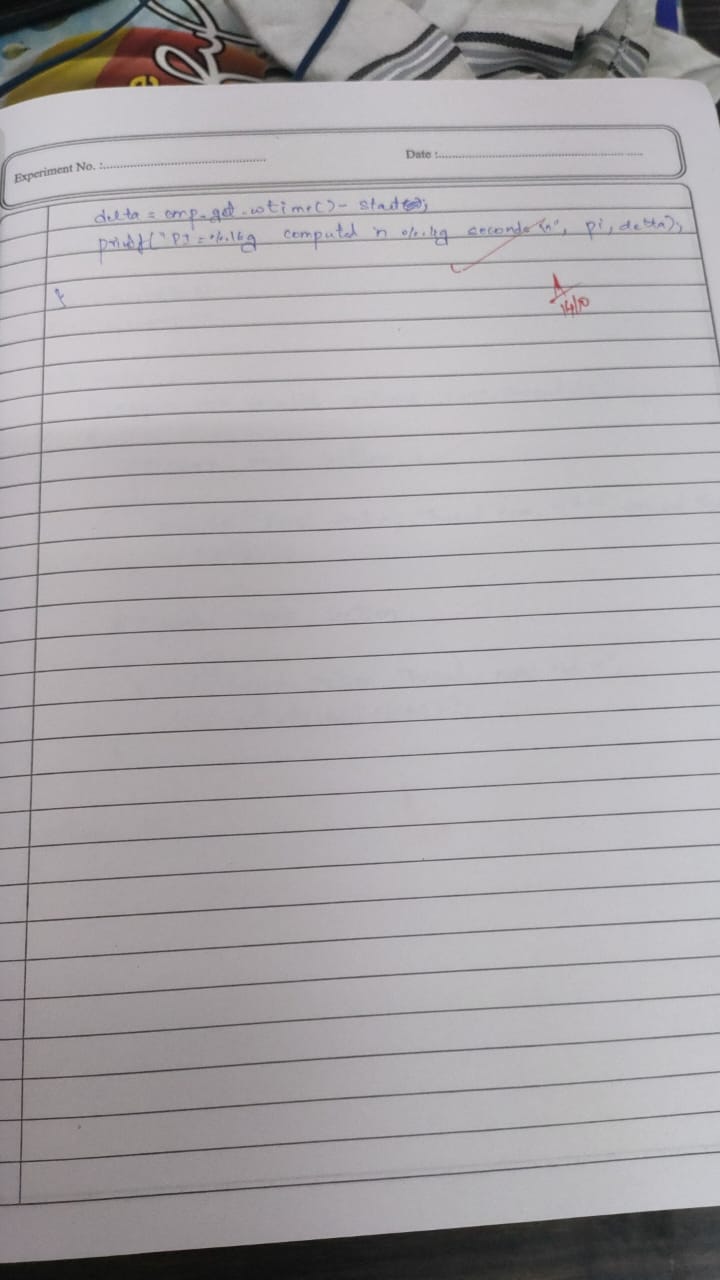 Experiment No. :
Date :
delta = omp_get_wtime() - start;
printf("PI = %.16g computed in %.4g seconds \n", pi, delta);
}
A
14/10